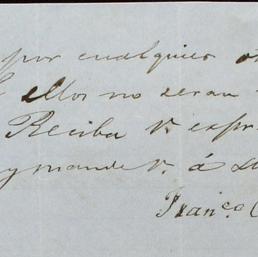 por cualquier
ellos no seran
Reciba V. espr
y mande V. á su
Franco. C